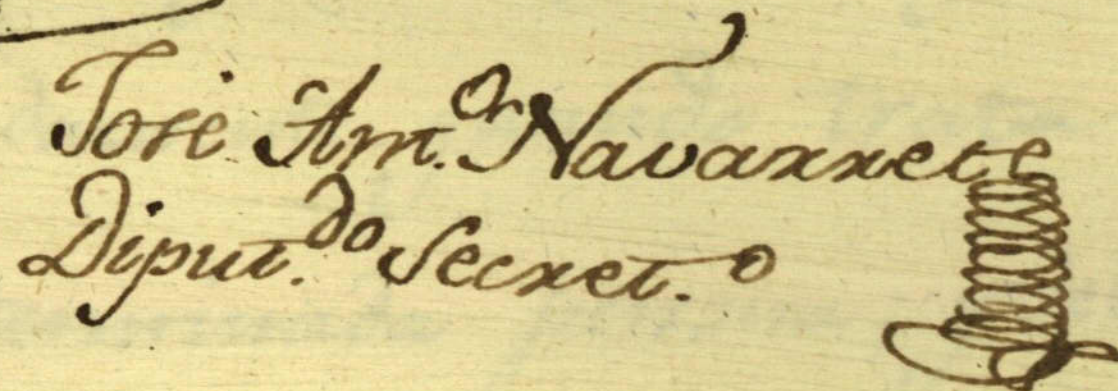 José Ant.º Navarrete
Diput.do Secret.o